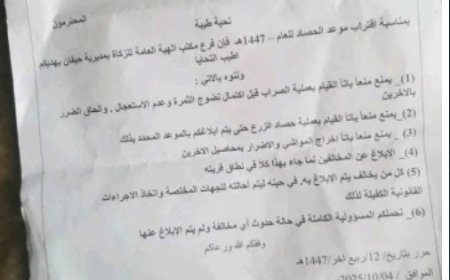 المحترمون
تحية طيبة
بمناسبة اقتراب موعد الحصاد للعام – 1447هـ فإن فرع مكتب الهية العامة للزكاة بمديرية حيفان يهديكم
اطيب التحايا
وننوه بالاتي :
(1)_ يمنع منعاً باتاً القيام بعملية الصراب قبل اكتمال نضوج الثمرة وعدم الاستعجال . والحاق الضرر
بالاخرين
(2)_ يمنع منعاً باتاً القيام بعملية حصاد الزرع حتى يتم ابلاغكم بالموعد المحدد بذلك
(3)_ يمنع منعاً باتاً اخراج المواشي والاضرار بمحاصيل الاخرين
(4)_ الابلاغ عن المخالفين لما جاء بهذا كلاً في نطاق قريته
(5) كل من يخالف يتم الإبلاغ به. في حينه ليتم أحالته للجهات المختصة واتخاذ الاجراءات
القانونية الكفيلة لذلك
(6)_ نحملكم المسؤولية الكاملة في حالة حدوث أي مخالفة ولم يتم الإبلاغ عنها
وفقكم الله ورعاكم
حرر بتاريخ/ 12/ربيع اخر/1447هـ
الموافق / 2025/10/04